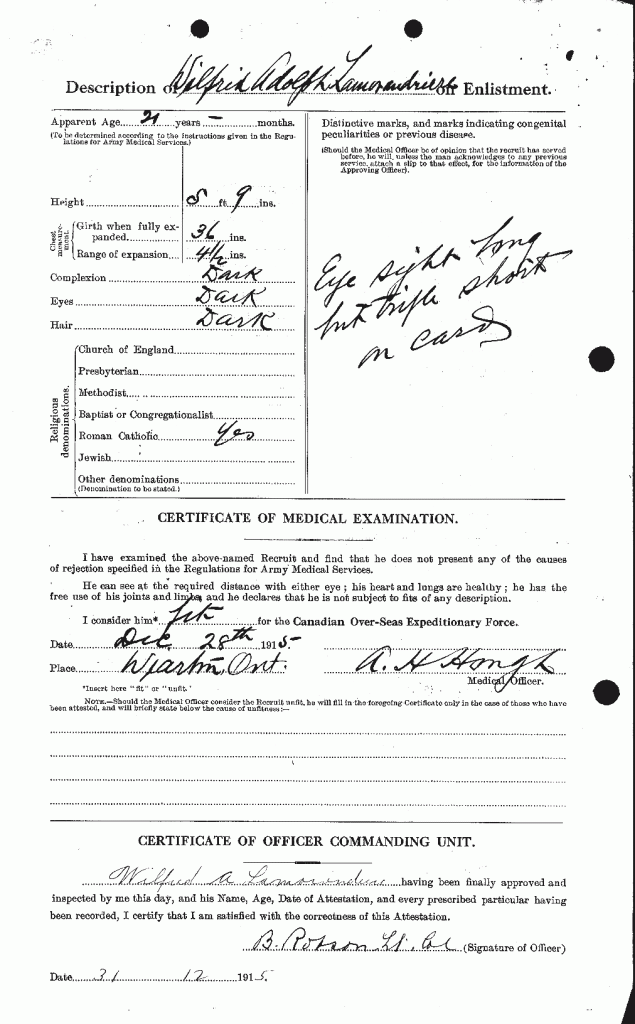 Description of Wilfrid Adolph Lamorandriere on Enlistment.
Apparent Age 21 years – months.
(To be determined according to the instructions given in the Regulations for Army Medical Services.)
Height 5 ft 9 ins.
Chest measurement.
Girth when fully expanded 36 ins.
Range of expansion 4½ ins.
Complexion Dark
Eyes Dark
Hair Dark
Religious denominations.
Church of England
Presbyterian
Methodist
Baptist or Congregationalist
Roman Catholic Yes
Jewish
Other denominations
(Denomination to be stated.)
Distinctive marks, and marks indicating congenital
peculiarities or previous disease.
(Should the Medical Officer be of opinion that the recruit has served
before, he will, unless the man acknowledges to any previous
service, attach a slip to that effect, for the information of the
Approving Officer).
Eye sight long
but trifle short
on card
CERTIFICATE OF MEDICAL EXAMINATION.
I have examined the above-named Recruit and find that he does not present any of the causes
of rejection specified in the Regulations for Army Medical Services.
He can see at the required distance with either eye; his heart and lungs are healthy; he has the
free use of his joints and limbs, and he declares that he is not subject to fits of any description.
I consider him* fit for the Canadian Over-Seas Expeditionary Force.
Date Dec 28th 1915
Place Wiarton, Ont. A. H. Hough
Medical Officer.
*Insert here "fit" or "unfit."
NOTE.—Should the Medical Officer consider the Recruit unfit, he will fill in the foregoing Certificate only in the case of those who have
been attested, and will briefly state below the cause of unfitness:—
CERTIFICATE OF OFFICER COMMANDING UNIT.
Wilfred A Lamorandiere having been finally approved and
inspected by me this day, and his Name, Age, Date of Attestation, and every prescribed particular having
been recorded, I certify that I am satisfied with the correctness of this Attestation.
B. Robson Lt. Col (Signature of Officer)
Date 31 12 1915.